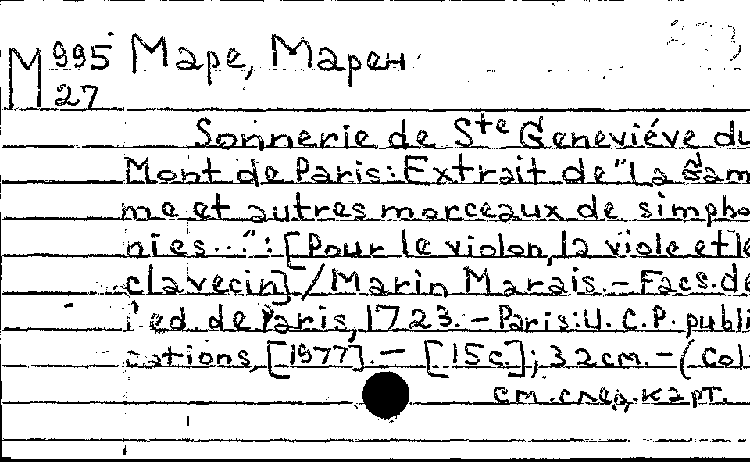 М 995 Маре, Марен
27
Sonnerie de Ste Geneviéve du
Mont de Paris: Extrait de "La Gam
me et autres morceaux de simpho
nies...": [Pour le violon, la viole et le
clavecin] / Marin Marais. - Facs. de
l'ed. de Paris, 1723. - Paris: U. C. P. publi
cations, [1977]. - [15 c.]; 32 cm. - (Col
см. след. карт.